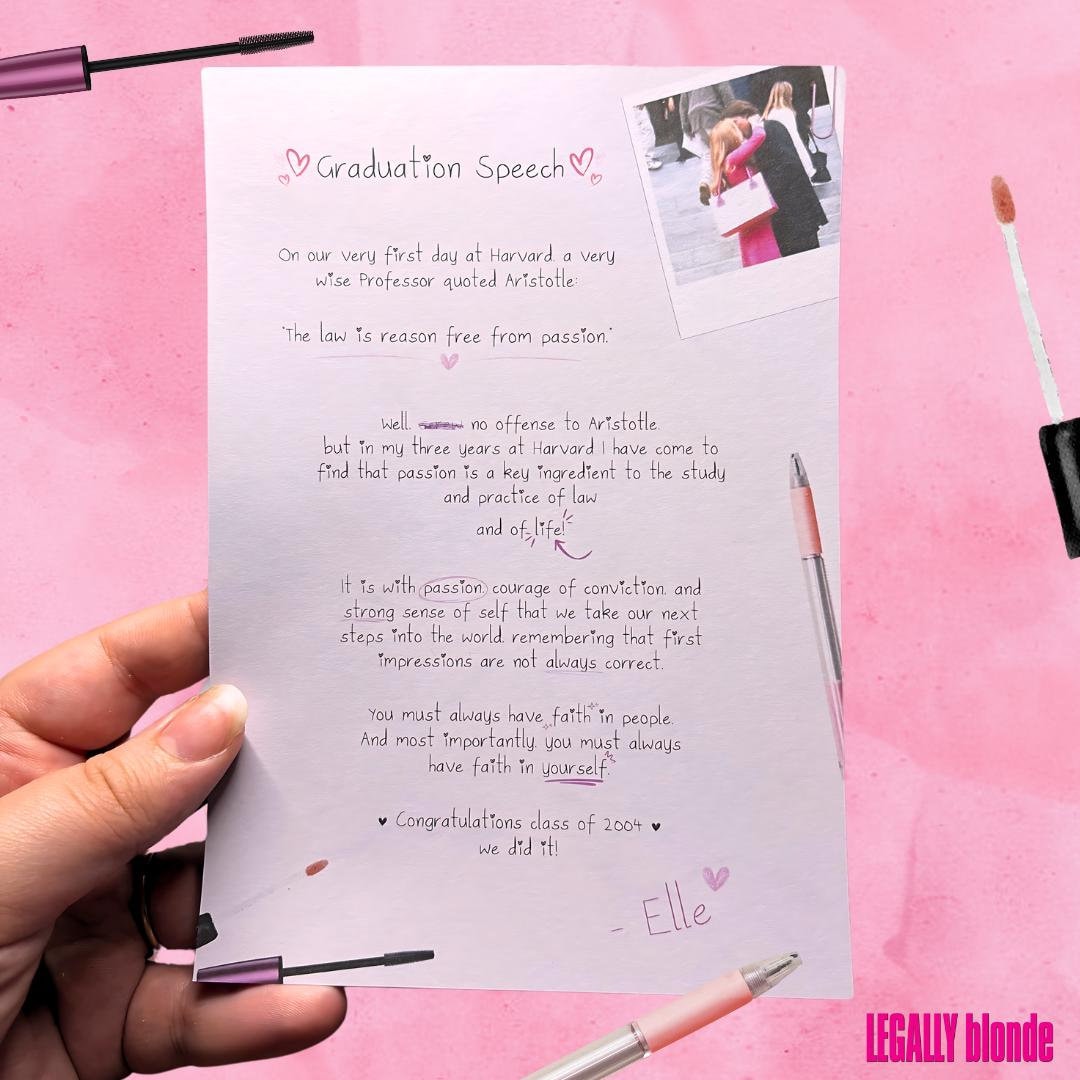 Graduation Speech
On our very first day at Harvard, a very
wise Professor quoted Aristotle:
"The law is reason free from passion."
Well, screw no offense to Aristotle,
but in my three years at Harvard I have come to
find that passion is a key ingredient to the study
and practice of law
and of life!
It is with passion, courage of conviction, and
strong sense of self that we take our next
steps into the world, remembering that first
impressions are not always correct.
You must always have faith in people.
And most importantly, you must always
have faith in yourself.
♥ Congratulations class of 2004 ♥
we did it!
- Elle
LEGALLY blonde